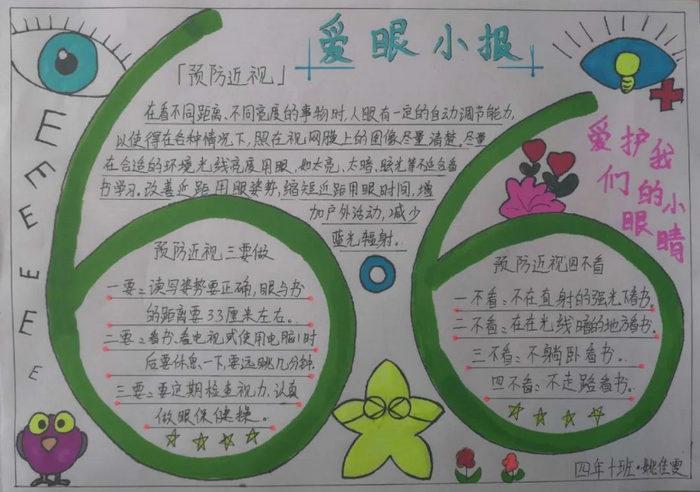 爱眼小报
「预防近视」
在看不同距离、不同亮度的事物时,人眼有一定的自动调节能力,
以使得在各种情况下,照在视网膜上的图像尽量清楚。尽量
在合适的环境光线亮度用眼,如太亮、太暗、眩光等不适合看
书学习。改善近距用眼姿势,缩短近距用眼时间,增
加户外活动,减少
蓝光辐射。
爱护我
们的小
眼睛
E
E
E
E
E
E
E
E
预防近视三要做
一要:读写姿势要正确,眼与书
的距离要33厘米左右。
二要:看书、看电视式使用电脑1时
后要休息一下,要远眺几分钟.
三要:要定期检查视力,认真
做眼保健操。
预防近视四不看
一不看:不在直射的强光下看书。
二不看:在在光线暗的地方看书.
三不看:不躺卧看书。
四不看:不走路看书。
四年十班·姚佳雯